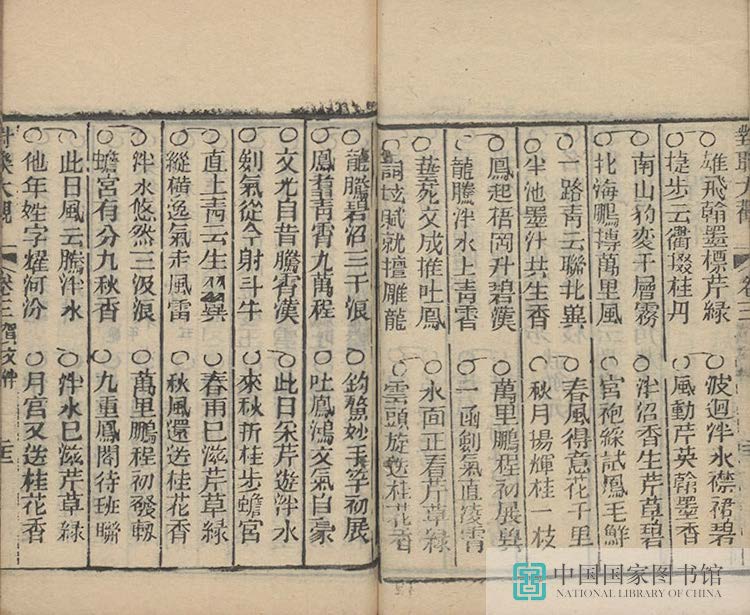 對聯大觀 卷三
○雄飛翰墨標芹綠 ○波迴泮水襟裾碧
○捷步云衢掇桂丹 ○風動芹英翰墨香
○南山豹变千層霧 ○泮沼香生芹草碧
○北海鵬搏萬里風 ○宮袍綵試鳳毛鮮
○一路青云聯北巽 ○春風得意花千里
○半池墨汁共生香 ○秋月揚輝桂一枝
○鳳起梧岡升碧漢 ○萬里鵬程初展巽
○龍騰泮水上青霄 ○一函劍氣直凌霄
○藝苑文成推吐鳳 ○水面正看芹草綠
○詞垓賦就擅雕龍 ○雲頭旋送桂花香
○龍騰碧沼三千浪 ○釣鰲妙手竿初展
○鳳看青霄九萬程 ○吐鳳鴻文氣自豪
○文光自昔騰霄漢 ○此日采芹遊泮水
○劍氣從今射斗牛 ○來秋折桂步蟾宮
○直上青云生羽巽 ○春雨已滋芹草綠
○縱橫逸氣走風雷 ○秋風還送桂花香
○泮水悠然三汲浪 ○萬里鵬程初發軔
○蟾宮有分九秋香 ○九重鳳閣待班聯
○此日風云騰泮水 ○泮水已滋芹草綠
○他年姓字耀河汾 ○月宮又送桂花香
對聯大觀 卷三
中国国家图书馆
NATIONAL LIBRARY OF CHINA